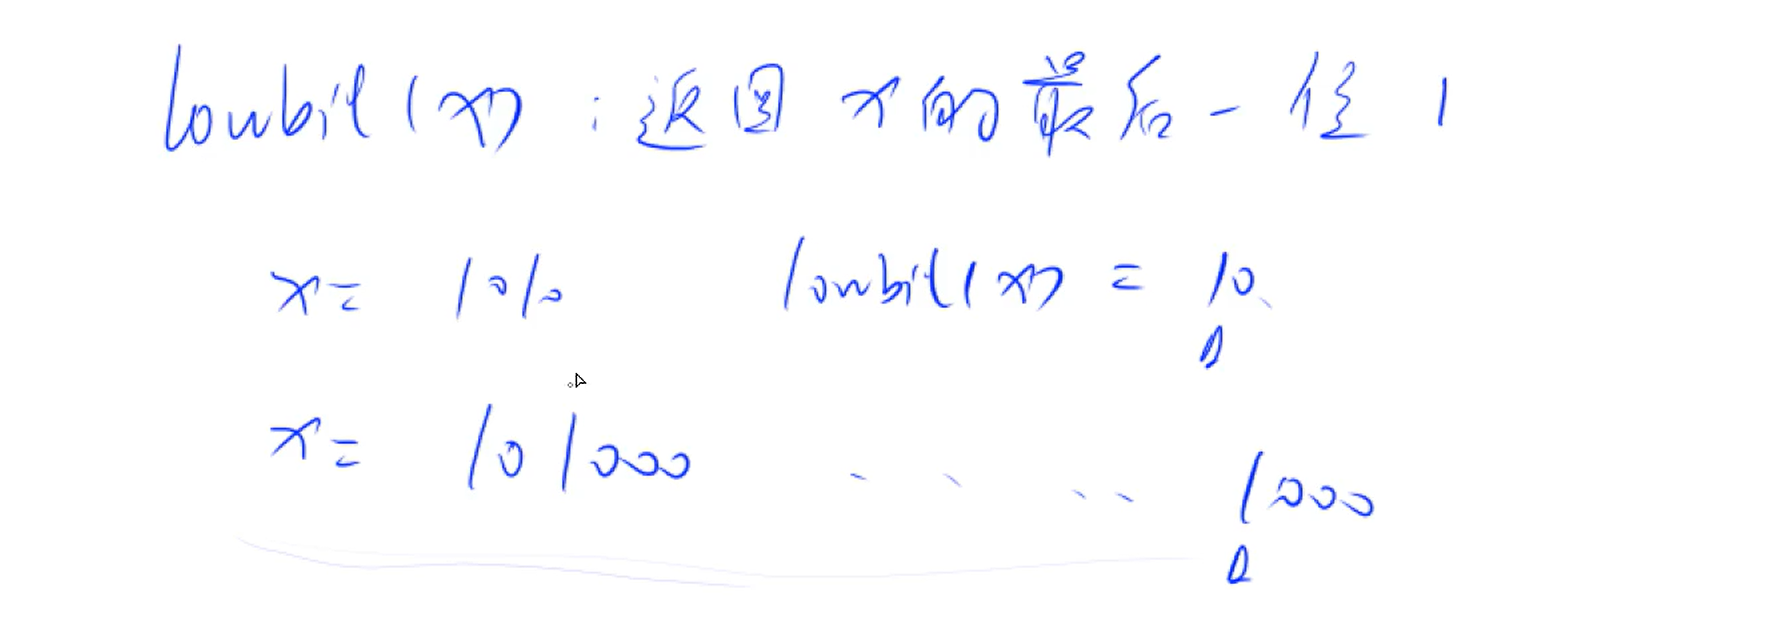 lowbit(x) : 返回 x 的最后一位 1
x = 1010 lowbit(x) = 10
x = 101000 .... 1000